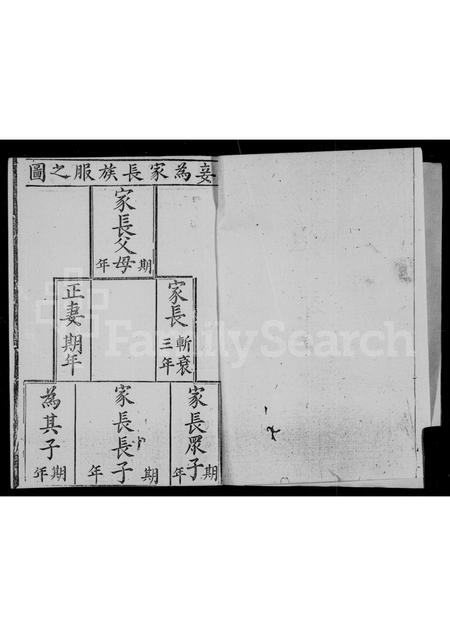 妾為家長族服之圖
家長父母
期年
家長
斬衰三年
正妻
期年
家長眾子
期年
家長長子
期年
為其子
期年
FamilySearch